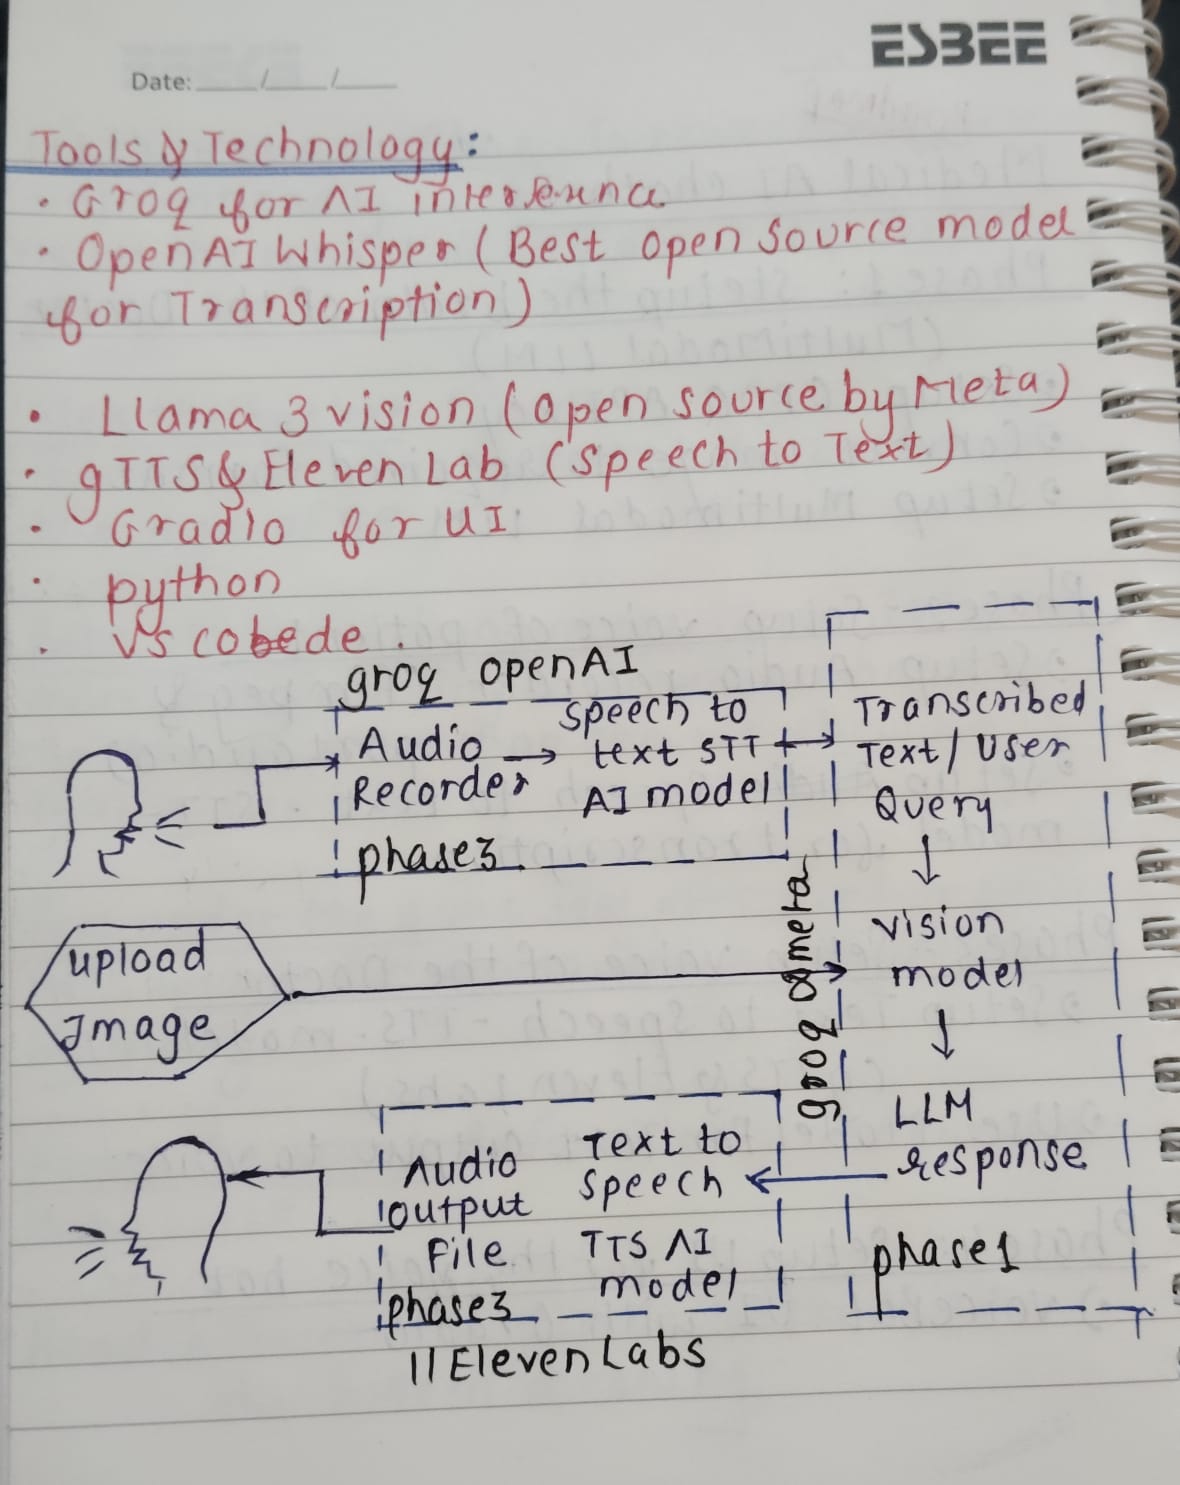 ESBEE
Date: __/__/__
Tools & Technology:
• Groq for AI interference
• OpenAI Whisper (Best open source model
for Transcription)
• Llama 3 vision (open source by Meta)
• gTTS & Eleven Lab (speech to Text)
• Gradio for UI
• python
• VS cobede.
groq openAI
Audio → speech to
Recorder text STT
AI model
phase3
Transcribed
Text/User
Query
↓
vision
model
↓
LLM
response
phase1
groq & meta
upload
Image
Audio
output
File
Text to
speech
TTS AI
model
phase3
11 ElevenLabs